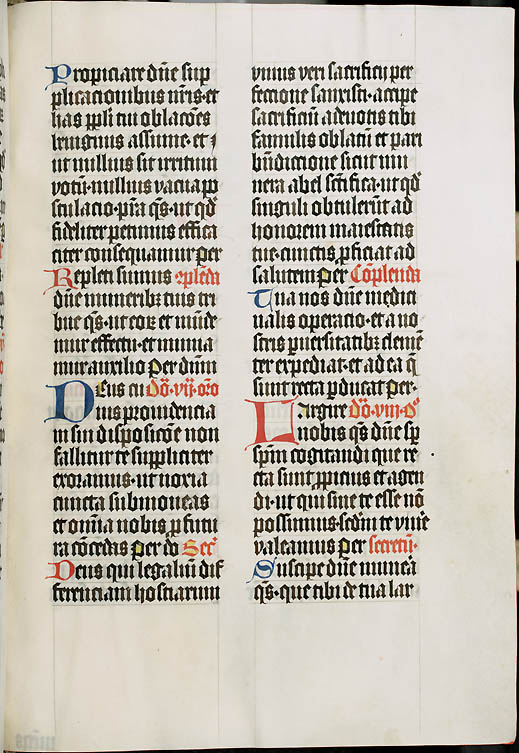 Propiciare dn̄e sup
plicacionibus nr̄is et
has ppl̄i tui oblacōes
benignus assume · et
ut nullius sit irritum
votū · nullius vacua po
stulacio · pr̄a qs̄ · ut qd̄
fideliter petimus effica
citer consequamur per
Repleti sumus 9pleda
dn̄e muneribꝫ tuis tri
bue qs̄ · ut eoꝝ et mūde
mur effectu · et munia
mur auxilio per dn̄m
Deus cū do · vij · oro
ius prouidencia
in sui disposicōe non
fallitur te suppliciter
exoramus · ut noxia
cuncta submoueas
et om̄ia nobis ꝓfutu
ra cōcedas per do Secr̄
Deus qui legaliū dif
ferenciam hostiarum
unius veri sacrificij per
fectione sanxisti · accipe
sacrificiū a deuotis tibi
famulis oblatū et pari
bn̄diccione sicut mu
nera abel sct̄ifica · ut qd̄
singuli obtulerūt ad
honorem maiestatis
tue · cunctis ꝓficiat ad
salutem per Cōplenda
Tua nos dn̄e medici
nalis operacio · et a no
stris ꝑuersitatibꝫ clemē
ter expediat · et ad ea q̄
sunt recta ꝑducat per ·
Largire do · viij · o
nobis qs̄ dn̄e sꝑ
spm̄ cogitandi que re
cta sunt ꝓpicius et agen
di · ut qui sine te esse nō
possumus · sedm̄ te viue
valeamus per secretū ·
Suscipe dn̄e munera
qs̄ · que tibi de tua lar